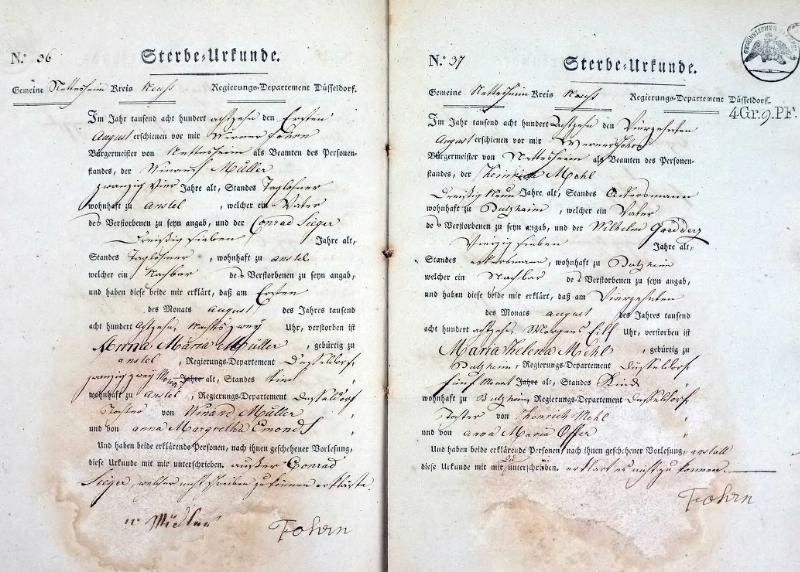 N.° 36
Sterbe-Urkunde.
Gemeine Nettesheim Kreis Neuß Regierungs-Departement Düsseldorf.
Im Jahr tausend acht hundert achtzehn den Ersten
August erschienen vor mir Werner Fohrn
Bürgermeister von Nettesheim als Beamten des Personen-
standes, der Winand Müller
zwanzig vier Jahre alt, Standes Taglöhner
wohnhaft zu anstel, welcher ein Vater
des Verstorbenen zu seyn angab, und der Conrad Sieger
Dreißig sieben Jahre alt,
Standes Taglöhner, wohnhaft zu anstel
welcher ein Nachbar des Verstorbenen zu seyn angab,
und haben diese beide mir erklärt, daß am Ersten
des Monats august des Jahres tausend
acht hundert Achtzehn Nachts zwey Uhr, verstorben ist
Anna Maria Müller, gebürtig zu
anstel, Regierungs-Departement Düsseldorf
zwanzig zwey Jahre alt, Standes
wohnhaft zu anstel, Regierungs-Departement Düsseldorf
Tochter von Winard Müller
und von anna Margretha Emonds
Und haben beide erklärende Personen, nach ihnen geschehener Vorlesung,
diese Urkunde mit mir unterschrieben außer Conrad
Sieger, welcher nicht schreiben zu können erklärte.
w Müller Fohrn
N.° 37
Sterbe-Urkunde.
Gemeine Nettesheim Kreis Neuß Regierungs-Departement Düsseldorf.
4Gr. 9. PF.
Im Jahr tausend acht hundert Achtzehn den Vierzehnten
August erschienen vor mir Werner Fohrn
Bürgermeister von Nettesheim als Beamten des Personen-
standes, der Heinrich Mehl
Dreißig Neun Jahre alt, Standes Ackersmann
wohnhaft zu Butzheim, welcher ein Vater
des Verstorbenen zu seyn angab, und der Wilhelm Godderz
Vierzig sieben Jahre alt,
Standes Ackersmann, wohnhaft zu Butzheim
welcher ein Nachbar des Verstorbenen zu seyn angab,
und haben diese beide mir erklärt, daß am Vierzehnten
des Monats august des Jahres tausend
acht hundert achtzehn Morgens Eilf Uhr, verstorben ist
Maria Helena Mehl, gebürtig zu
Butzheim, Regierungs-Departement Düsseldorf
fünf Monat Jahre alt, Standes Kind
wohnhaft zu Butzheim, Regierungs-Departement Düsseldorf
Tochter von Heinrich Mehl
und von anna Maria Offer
Und haben beide erklärende Personen, nach ihnen geschehener Vorlesung, anstatt
diese Urkunde mit mir zu unterschreiben, erklärt es nicht zu können.
Fohrn